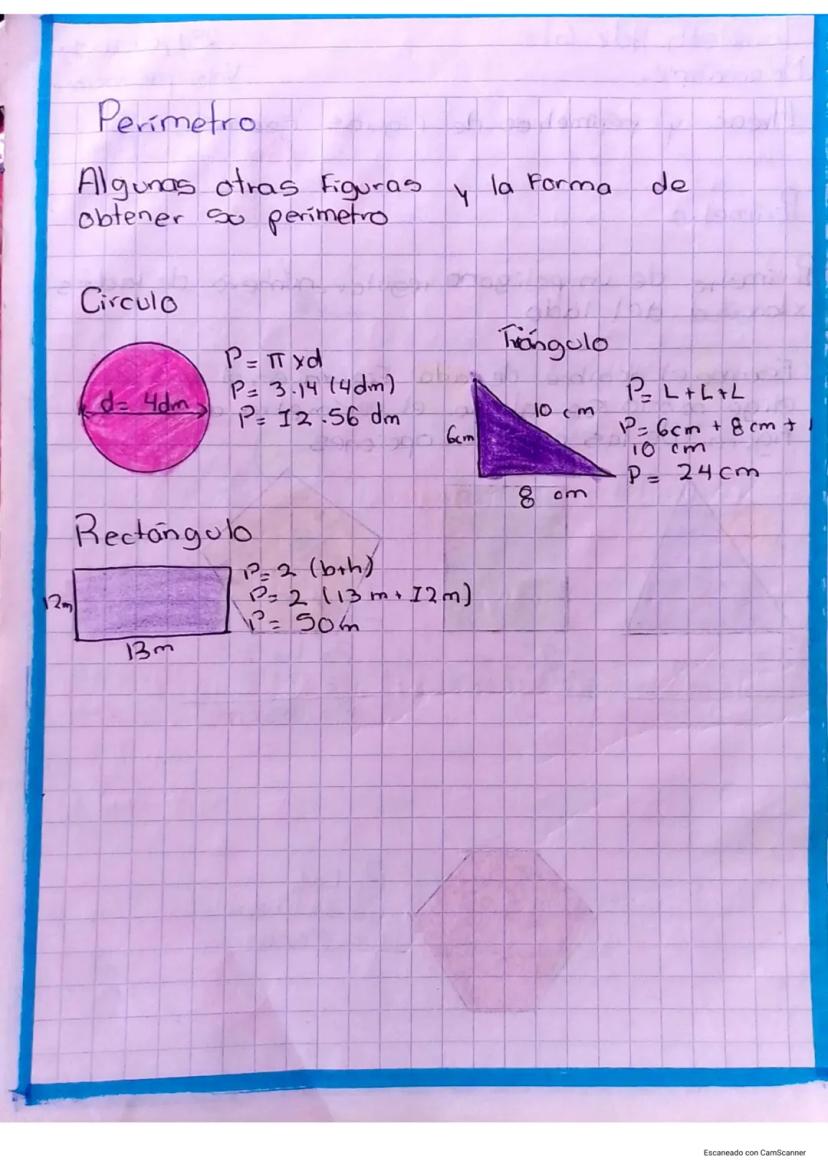 Perímetro
Algunas otras Figuras y la Forma de
obtener su perímetro
Círculo
d= 4dm
P= π x d
P= 3.14 (4dm)
P= 12.56 dm
Triángulo
6cm
10 cm
8 cm
P= L+L+L
P= 6cm + 8cm +
10 cm
P= 24cm
Rectángulo
12m
13m
P= 2 (b+h)
P= 2 (13m+12m)
P= 50m
Escaneado con CamScanner